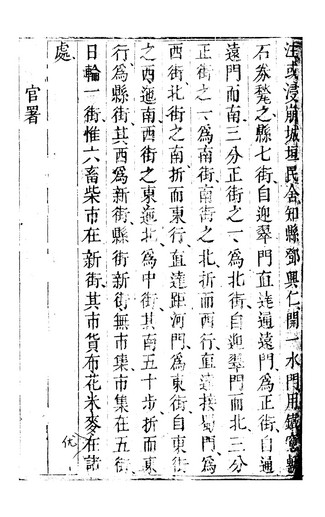 注或浸崩城垣民舍知縣鄧興仁開一水門用鐵窓
石劵甃之縣七街自迎翠門直達通遠門為正街自通
遠門而南三分正街之一為北街自迎翠門而北三分
正街之一為南街南街之北折而西行直達接蜀門為
西街北街之南折而東行直達距河門為東街自東街
之西迤南西街之東迤北為中街其南五十步折而東
行為縣街其西為新街縣街新街無市集市集在五街
日輪一街惟六畜柴市在新街其市貨布花米麥在諸
處
官署